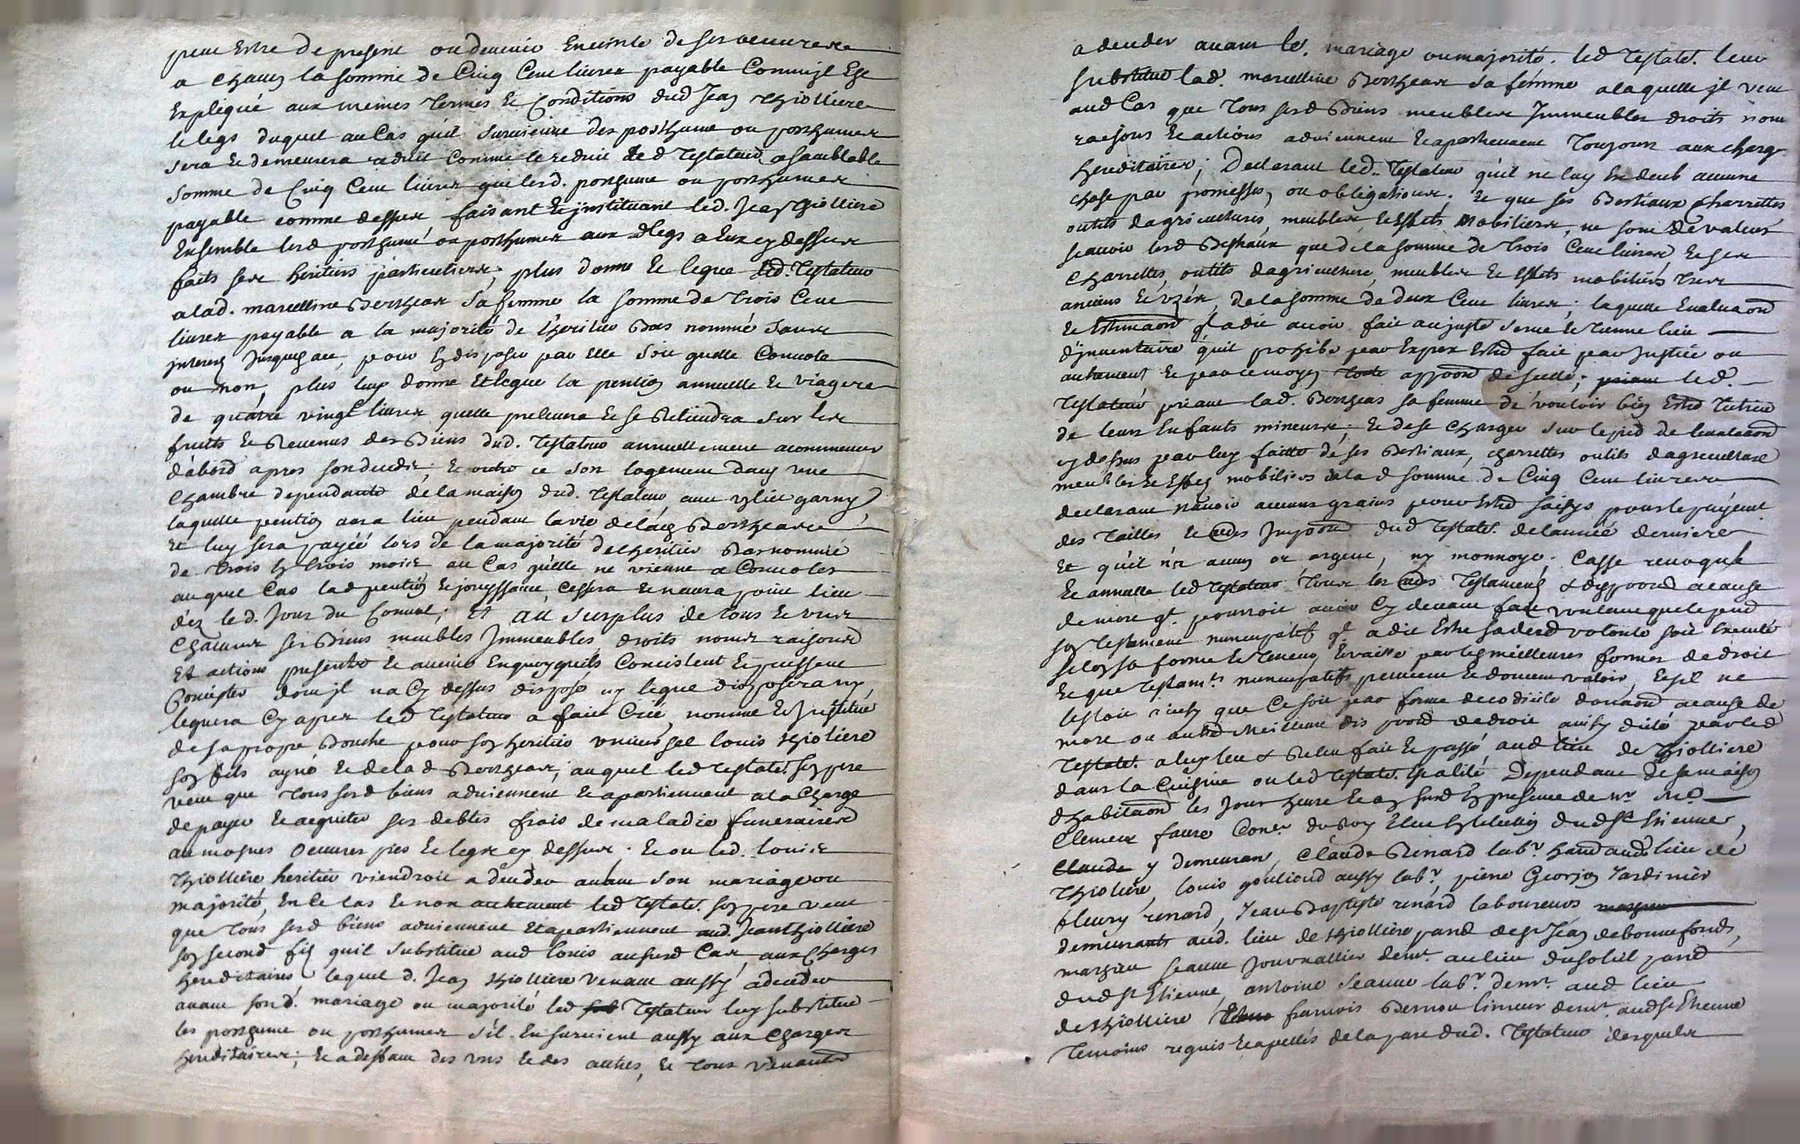 peut Estre de present ou devenir Enceinte de ses oeuvres
a chacun la somme de Cinq Cent livres payable Comm'jl Est
Expliqué aux memes termes Et Conditions dud Jean thiolliere
le legs duquel au Cas qu'il survienne des posthume ou posthumes
sera Et demeurera reduit Comme le reduit led testateur a semblable
somme de Cinq Cent livres que lesd. postume ou posthumes
payable comme dessus faisant Et jnstituant led. Jean thiolliere
Ensemble lesd posthume ou posthumes aux legs a Eux cy dessus
faits ses heritiers particuliers, plus donne Et legue led. testateur
a lad. marcelline Bertheas sa femme la somme de trois Cent
livres payable a la majorité de l'heritier Bas nommé sans
jnterest jusques au, pour En disposer par Elle soit quelle Convole
ou non, plus luy donne Et legue la pention annuelle Et viagere
de quatre vingt livres quelle prelevera Et se Retiendra sur les
fruits Et Revenus des Biens dud. testateur annuellement a commencer
d'abord apres son decedz, Et outre ce son logement dans une
Chambre dependante de la maison dud. testateur avec un lict garny
laquelle pention aura lieu pendant la vie de lad Bertheas
Et luy sera payée lors de la majorité de l'heritier Bas nommé
de trois En trois mois au Cas qu'elle ne vienne a Convoler
auquel Cas lad pention Et jouyssance Cessera Et n'aura point lieu
dez le d. Jour du Convol; Et Au surplus de tous Et uns
Chacuns ses Biens meubles Jmmeubles droits noms raisons
Et actions presents Et avenir Enquoyquils Concistent Et puissent
Concister dont jl na Cy dessus disposé ny legué disposera ny
leguera Cy apres led testateur a fait Créé, nommé Et Jnstitué
de sa propre Bouche pour son heritier universel louis thioliere
son fils ayné Et de lad Bertheas, auquel led testat. son pere
veut que tous sesd biens adviennent Et apartiennent a la Charge
de payer Et acquiter ses debtes frais de maladie funeraires
aumosnes oeuvres pies Et legs cy dessus. Et ou led. louis
thiolliere heritier viendroit a deceder avant son mariage ou
majorité, En ce Cas Et non autrement led testat. son pere veut
que tous sesd biens adviennent Et apartiennent aud. Jean thiolliere
son second fils quil substitue aud louis aususd Cas, aux Charges
hereditaires lequel d. Jean thiolliere venant aussy a deceder
avant sond. mariage ou majorité led testateur luy substitue
les postume ou posthumes s'il En survient aussy aux Charges
hereditaires; Et a deffaut des uns Et des autres, Et tous venants
a deceder avant le. mariage ou majorité. led testat. leur
substitue lad. marcelline Bertheas sa femme a laquelle jl veut
aud Cas que tous sesd Biens meubles Jmmeubles droits noms
raisons Et actions adviennent Et apartiennent toujours aux charges
hereditaires; Declarant led. testateur qu'il ne luy Est deub aucune
chose par promesses, ou obligations. Et que ses Bestiaux charrettes
outils dagriculture, meubles Et Effets mobiliers, ne sont de valeur
scavoir lesd Bestiaux que de la somme de trois Cent livres, Et ses
Charrettes, outils dagriculture, meubles Et Effets mobiliers tres
anciens Et uzés, de la somme de deux Cent livres; laquelle Evaluaon
Et Estimaon jl a dit avoir fait au juste serve Et tienne lieu
djnventaire qu'il prohibe par Expres Estre fait par justice ou
autrement Et par ce moyen appoon de scellé; led.
testateur priant lad. Bertheas sa femme de vouloir bien Estre tutrice
de leurs Enfants mineurs; Et de se charger sur le pied de levaluaon
cy dessus par luy faitte de ses Bestiaux, charrettes outils dagriculture
meubles Et Effets mobiliers de la d somme de Cinq Cent livres
declarant n'avoir aucuns grains pour Estre saisys pour le payemt
des tailles Et autres Jmpoons dud testat. de lannée derniere
Et qu'il n'a aucun or argent, ny monnoye. Casse revoque
Et annulle led testateur tous les autres testaments & dispoons a cause
de mort qu'il pourroit avoir Cy devant fait voulant que le pnt
son testament nuncupatif qu'il a dit Estre sa dere volonté soit Executé
selon sa forme Et teneur, Et vaille par les meilleures formes de droit
Et que testamts nuncupatifs peuvent Et doivent valoir, Et s'il ne
valoit ainsy que Ce soit par forme de codicile donaon a cause de
mort ou autre meilleure dispoon de droit ainsy dicté par led
testat. a luy leu & Releu fait Et passé aud lieu de thiolliere
dans la Cuisine ou led testat. Est alité Dependant de sa maison
d'habitaon les jour heure Et an susd En presence de mr. Me
Clement faure Coner du Roy Eleu En lelection dud St Etienne,
y demeurant, Claude Renard labr. habt aud lieu de
thioliere, louis goulioud aussy labr, piere Georjon Jardinier
fleury renard, Jean Baptiste renard laboureurs
demeurants aud. lieu de thiolliere parr de St Jean de bonnefonds,
mathieu Jeanne Journallier demt. au lieu du soleil parr
dud St Etienne, antoine Jeanne labr. demt. aud lieu
de thiolliere francois Bernou limeur demt. aud St Etienne
temoins requis Et apellés de la part dud. testateur desquels